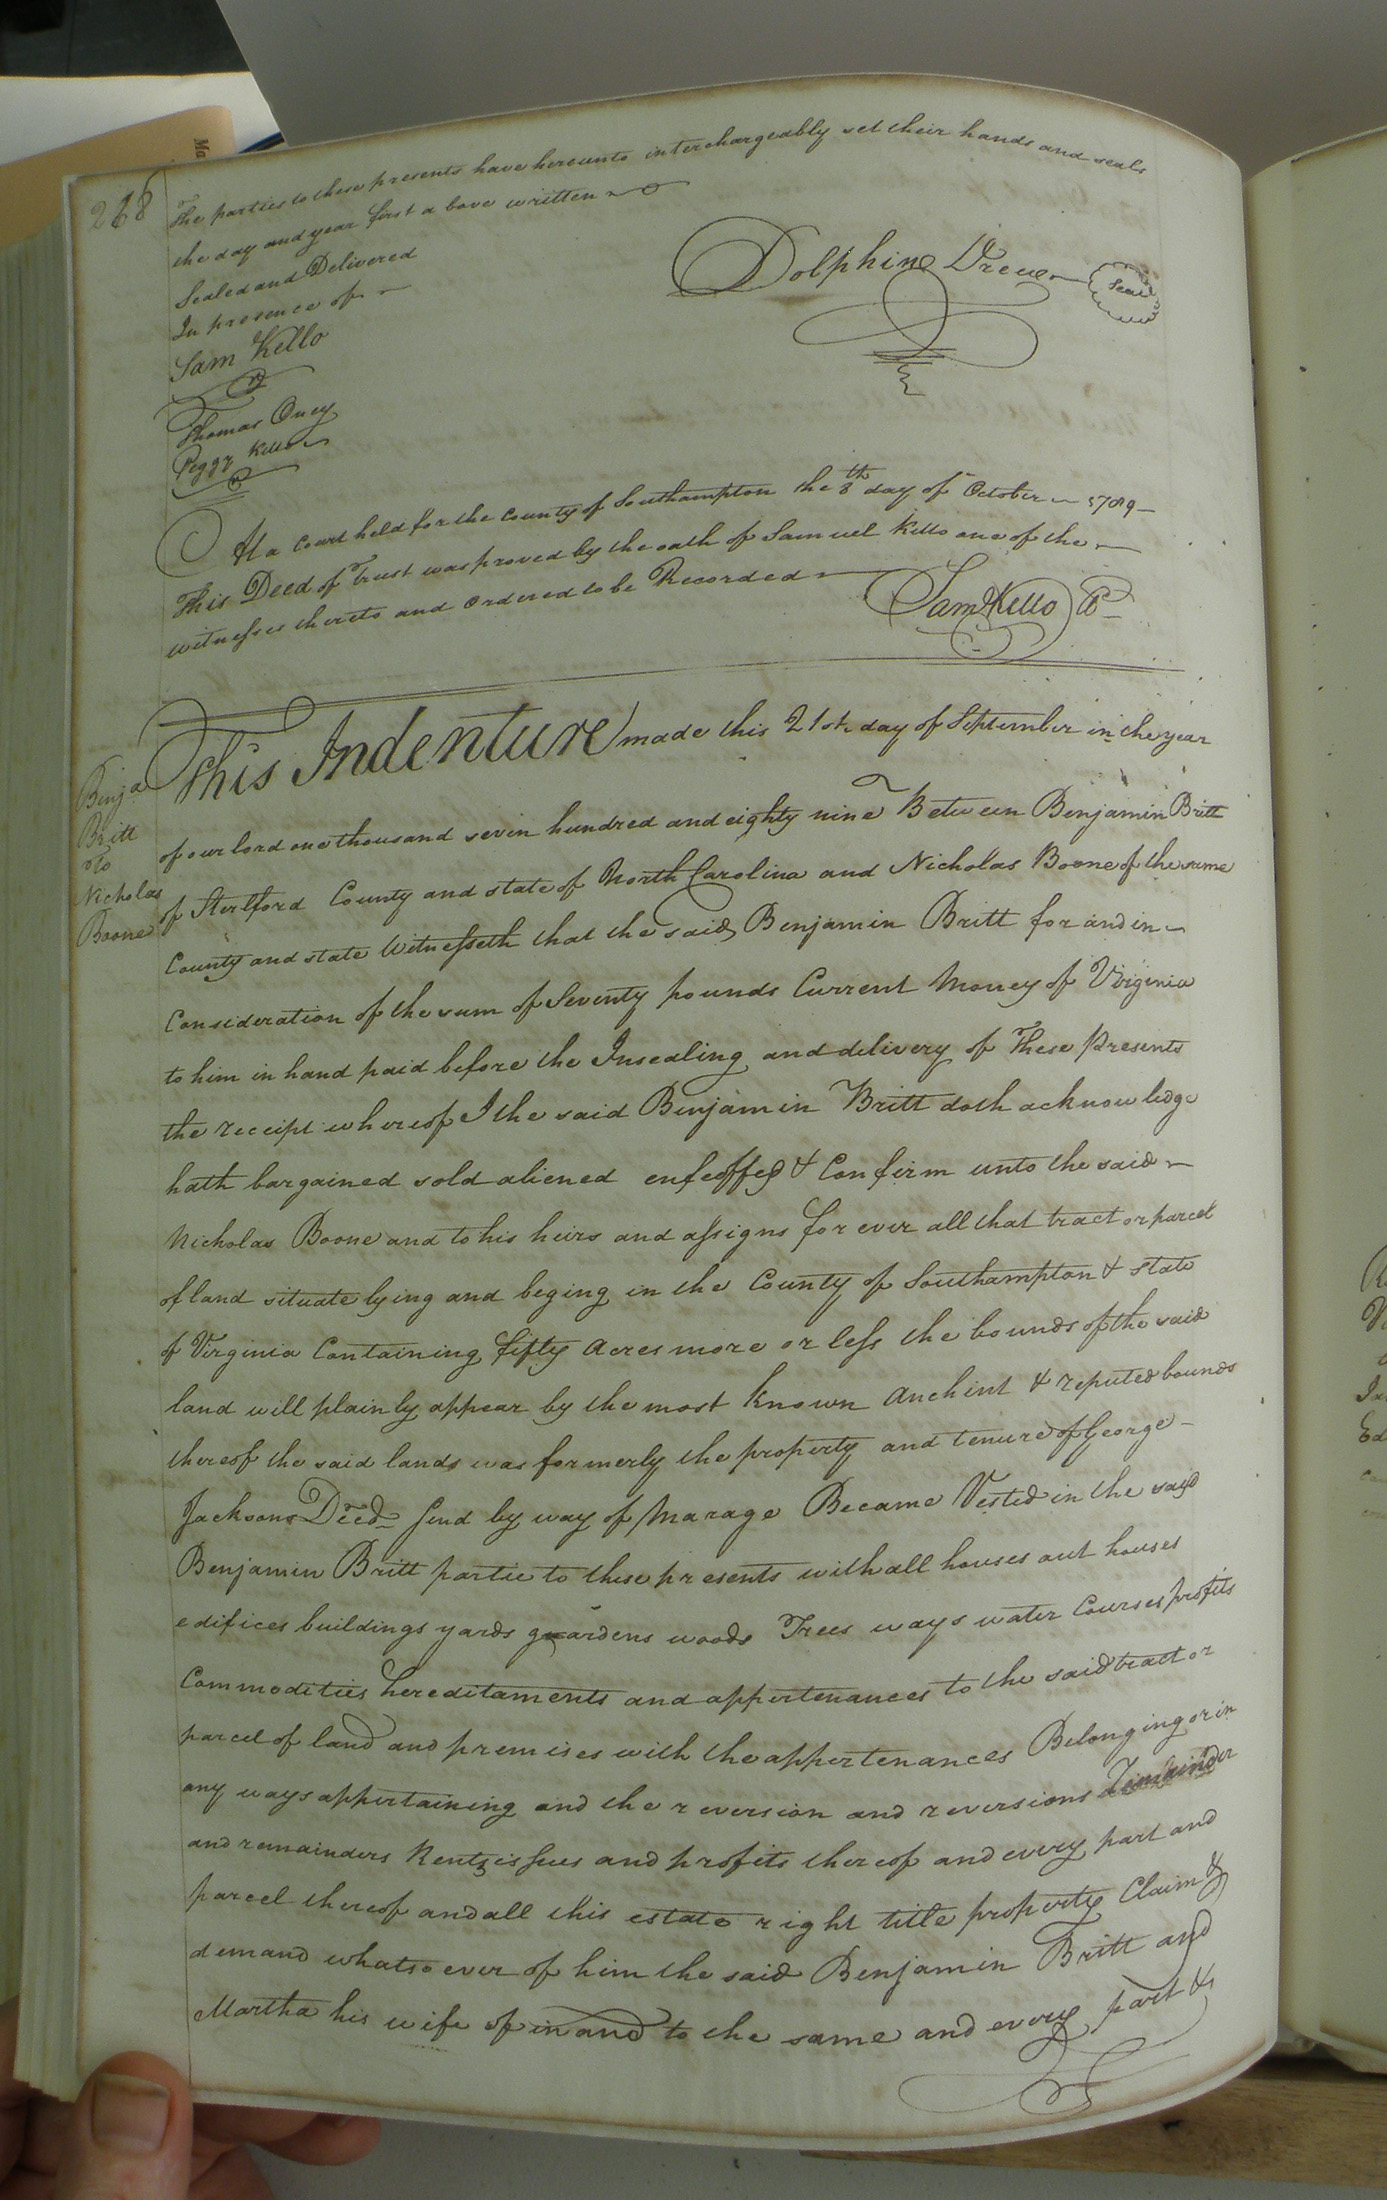 268
The parties to these presents have hereunto interchargeably set their hands and seals
the day and year first a bove written
Sealed and Delivered
In presence of
Sam Kello
Thomas Oney
Peggy Kello
Dolphine Drew
Seal
At a Court held for the County of Southampton the 8th day of October 1789
This Deed of Trust was proved by the oath of Samuel Kello one of the
witnesses thereto and Ordered to be Recorded
Sam Kello
Benja
Britt
To
Nicholas
Boone
This Indenture made this 21st day of September in the year
of our lord one thousand seven hundred and eighty nine Between Benjamin Britt
of Hertford County and state of North Carolina and Nicholas Boone of the same
County and state Witnesseth that the said Benjamin Britt for and in
Consideration of the sum of Seventy pounds Current Money of Virginia
to him in hand paid before the Insealing and delivery of These Presents
the receipt whereof I the said Benjamin Britt doth acknowledge
hath bargained sold aliened enfeoffed & Confirm unto the said
Nicholas Boone and to his heirs and assigns for ever all that tract or parcel
of land situate lying and beging in the County of Southampton & state
of Virginia Containing fifty Acres more or less the bounds of the said
land will plainly appear by the most known Anchint & reputed bounds
thereof the said lands was formerly the property and tenure of George
Jacksons Deed and by way of Marage Became Vested in the sayd
Benjamin Britt partie to these presents with all houses out houses
edifices buildings yards guardens woods Trees ways water Courses profits
Commodities hereditaments and appertenances to the said tract or
parcel of land and premises with the appertenances Belonging or in
any ways appertaining and the reversion and reversions remainder
and remainders Rents issues and profits thereof and every part and
parcel thereof and all this estate right title property Claim &
demand whatsoever of him the said Benjamin Britt and
Martha his wife of in and to the same and every part &